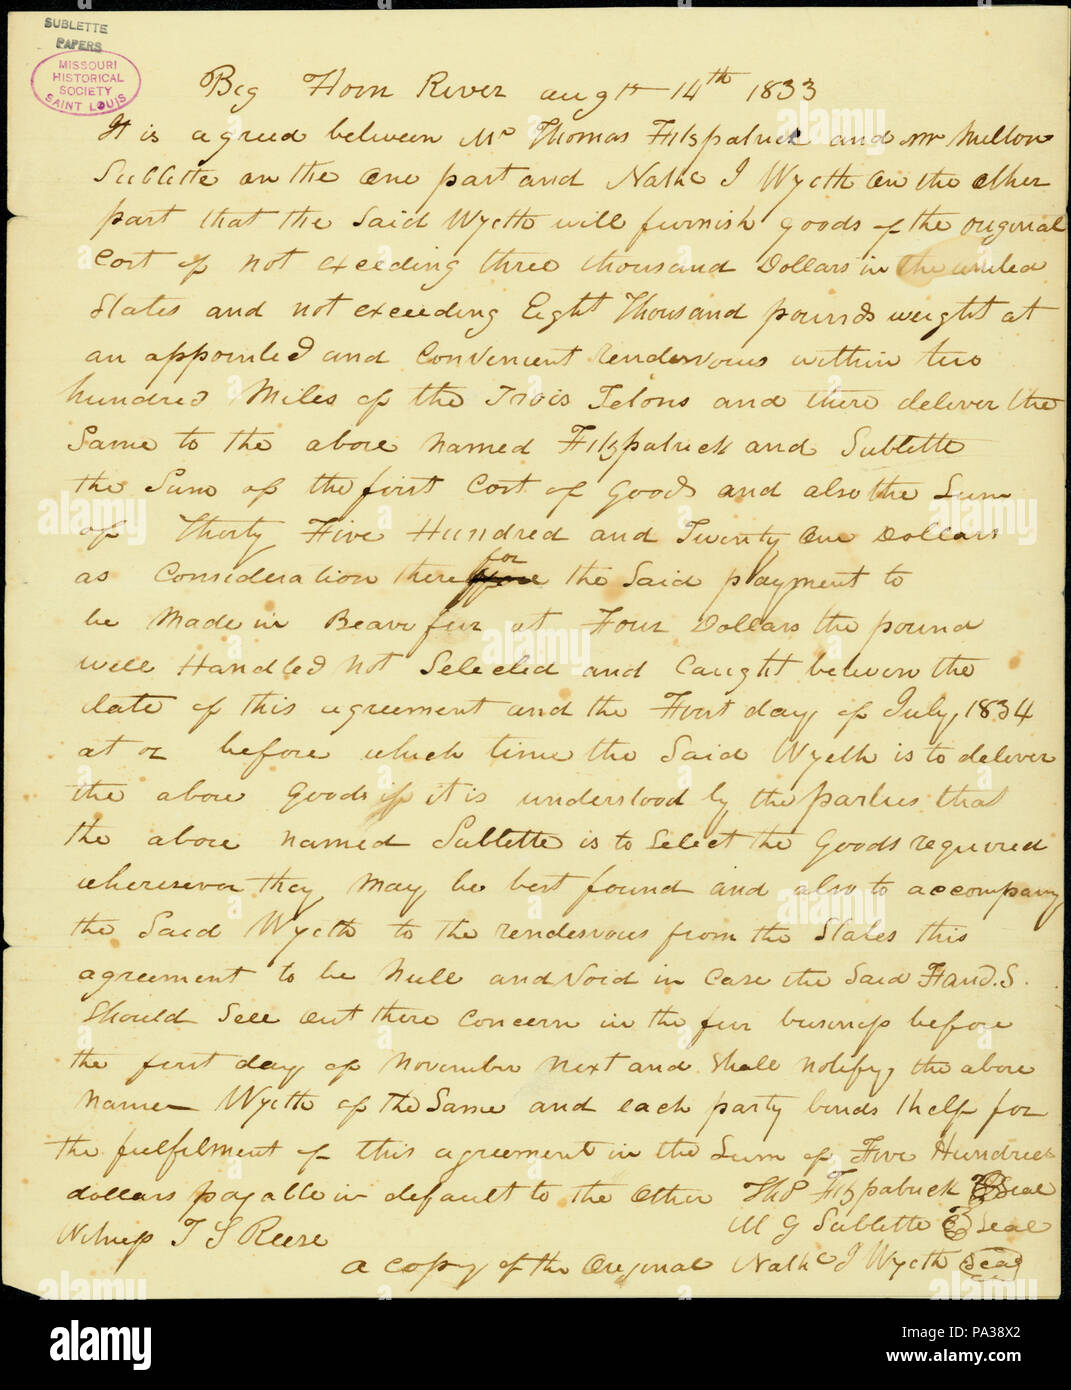 SUBLETTE
PAPERS
MISSOURI
HISTORICAL
SOCIETY
SAINT LOUIS
Big Horn River augst 14th 1833
It is agreed between Mr Thomas Fitzpatrick and Mr Milton
Sublette on the one part and Nathl J Wyeth on the other
part that the Said Wyeth will furnish goods of the original
Cost of not exeeding three thousand Dollars in the united
States and not exceeding Eight Thousand pounds weight at
an appointed and Convenient rendesvous within two
hundred Miles of the Trois Tetons and there deliver the
Same to the above named Fitzpatrick and Sublette
the Sum of the first Cost of Goods and also the Sum
of Thirty Five Hundred and Twenty One Dollars
as Consideration there for the Said payment to
be Made in Beave fur at Four Dollars the pound
well Handled not Selected and Caught between the
date of this agreement and the First day of July, 1834
at or before which time the Said Wyeth is to deliver
the above Goods if it is understood by the parties that
the above named Sublette is to Select the Goods required
wheresever they may be best found and also to accompany
the Said Wyeth to the rendesvous from the States this
agreement to be Null and Void in Case the Said F and. S.
Should Sell out there Concern in the fur business before
the first day of November Next and Shall notify, the above
name Wyeth of the Same and each party binds itself for
the fulfilment of this agreement in the Sum of Five Hundred
dollars payable in default to the Other Thos Fitzpatrick Seal
M G Sublette Seal
Witness T S Reese
a copy of the Original Nathl J Wyeth Seal
alamy
Image ID: PA38X2
www.alamy.com